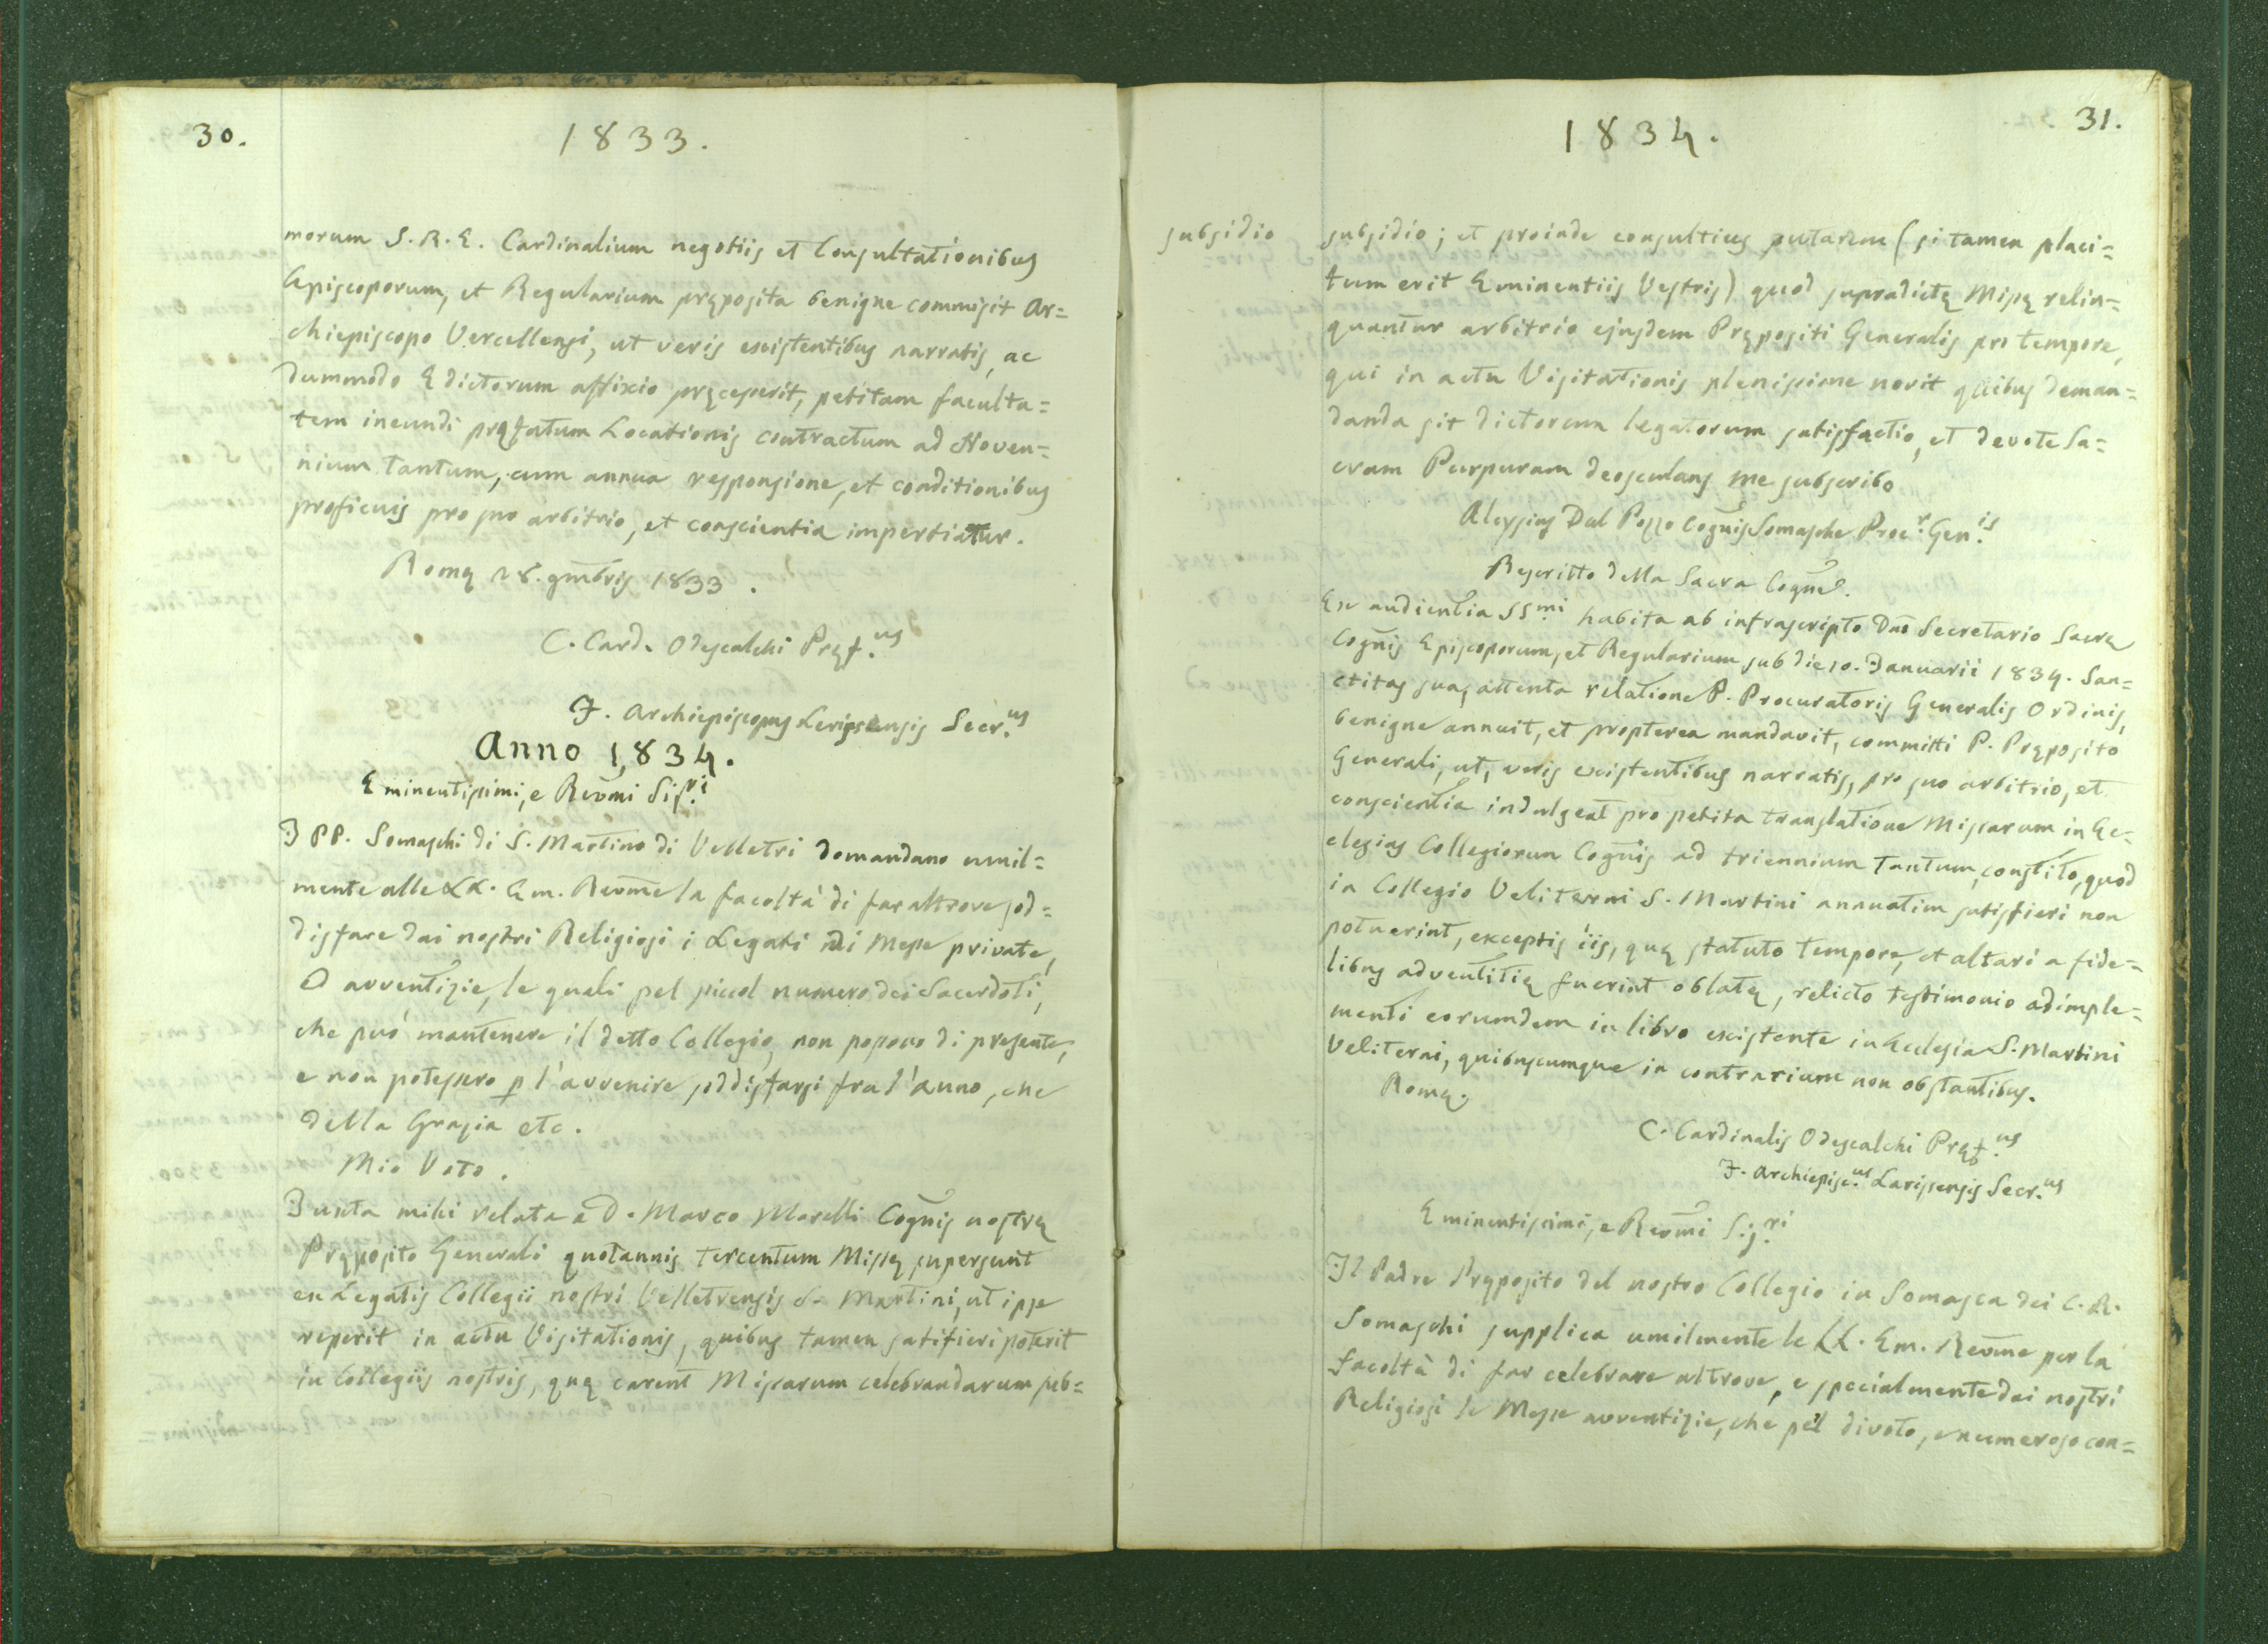 30.
1833.
morum S. R. E. Cardinalium negotiis et Consultationibus
Episcoporum, et Regularium pręposita benigne commisit Ar=
chiepiscopo Vercellensi, ut veris existentibus narratis, ac
dummodo Edictorum affixio pręcesserit, petitam faculta=
tem ineundi pręfatum Locationis contractum ad Noven=
nium tantum, cum annua responsione, et conditionibus
proficuis pro suo arbitrio, et conscientia impertiatur.
Romę 28. 9mbris 1833.
C. Card. Odescalchi Pręf.us
J. Archiepiscopus Larissensis Secr.us
Anno 1834.
Eminentissimi, e Revmi Sig.ri
I PP. Somaschi di S. Martino di Velletri domandano umil=
mente alle LL. Em. Revme la facoltà di far altrove sod=
disfare dai nostri Religiosi i Legati di Messe private,
ed avventizie, le quali pel piccol numero dei Sacerdoti,
che può mantenere il detto Collegio, non possono di presente,
e non potessero p l'avvenire soddisfarsi fra l'anno, che
della Grazia etc.
Mio Voto.
Juxta mihi relata a D. Marco Morelli Cognis nostrę
Pręposito Generali quotannis tercentum Missę supersunt
ex Legatis Collegii nostri Velletrensis S. Martini, ut ipse
reperit in actu Visitationis, quibus tamen satifieri poterit
in Collegiis nostris, quę carent Missarum celebrandarum sub=
31.
1834.
subsidio
subsidio; et proinde consultius putarem (si tamen placi=
tum erit Eminentiis Vestris) quod supradictę Missę relin=
quantur arbitrio ejusdem Prępositi Generalis pro tempore,
qui in actu Visitationis plenissime novit quibus deman=
danda sit dictorum legatorum satisfactio, et devote Sa=
cram Purpuram deosculans me subscribo
Aloysius Dal Pozzo Cognis Somaschę Proc.r Gen.is
Rescritto della Sacra Cogne.
Ex audientia SS.mi habita ab infrascripto Dno Secretario Sacrę
Cognis Episcoporum, et Regularium sub die 10. Januarii 1834. San=
ctitas sua, attenta relatione P. Procuratoris Generalis Ordinis,
benigne annuit, et propterea mandavit, committi P. Pręposito
Generali, ut, veris existentibus narratis, pro suo arbitrio, et
conscientia indulgeat pro petita translatione Missarum in Ec=
clesias Collegiorum Cognis ad triennium tantum, constito, quod
in Collegio Veliterni S. Martini annuatim satisfieri non
potuerint, exceptis iis, quę statuto tempore, et altari a fide=
libus adventitię fuerint oblatę, relicto testimonio adimple=
menti eorumdem in libro existente in Ecclesia S. Martini
Veliterni, quibuscumque in contrarium non obstantibus.
Romę.
C. Cardinalis Odescalchi Pręf.us
J. Archiepisc.us Larissensis Secr.us
Eminentissimi, e Revmi Sig.ri
Il Padre Pręposito del nostro Collegio in Somasca dei C. R.
Somaschi supplica umilmente le LL. Em. Revme per la
facoltà di far celebrare altrove, e specialmente dai nostri
Religiosi le Messe avventizie, che pel divoto, e numeroso con=